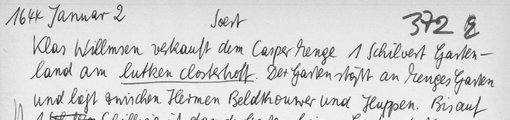 1644 Januar 2 Soest 372
Klas Willmsen verkauft dem Casper Menge 1 Schilvert Garten-
land am lutken closterhoff. Der Garten stößt an Menges Garten
und liegt zwischen Hermen Beldthouwer und Huppen. Bis auf